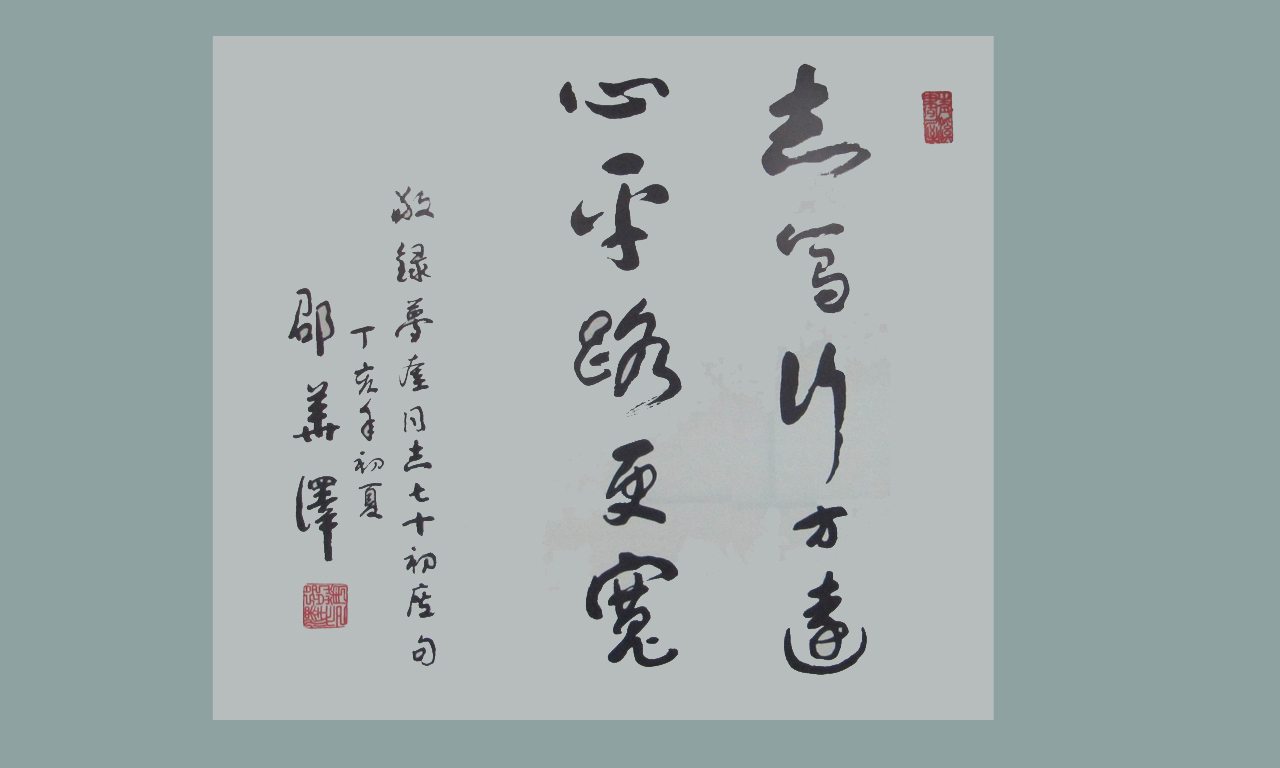 志高行方遠
心平路更寬
敬録夢奎同志七十初度句
丁亥年初夏
邵華澤